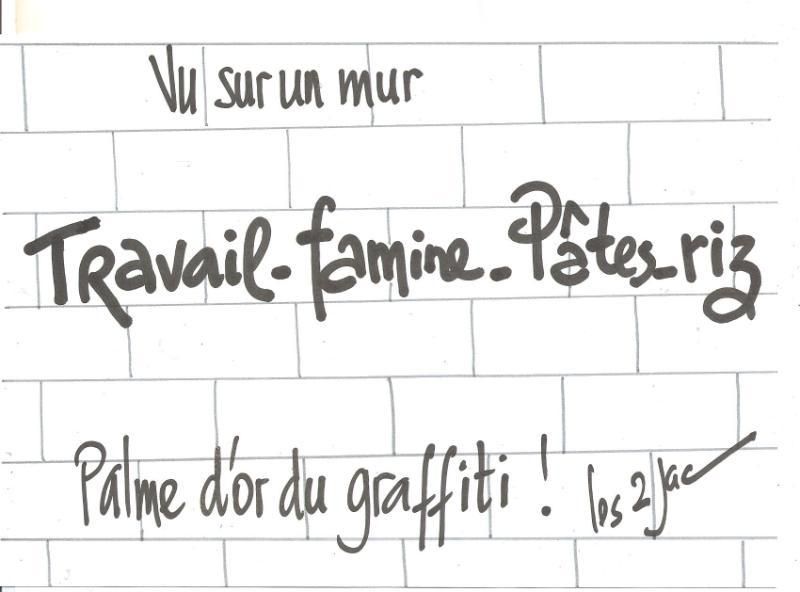 Vu sur un mur
Travail - famine - Pâtes - riz
Palme d'or du graffiti ! les 2 Jac